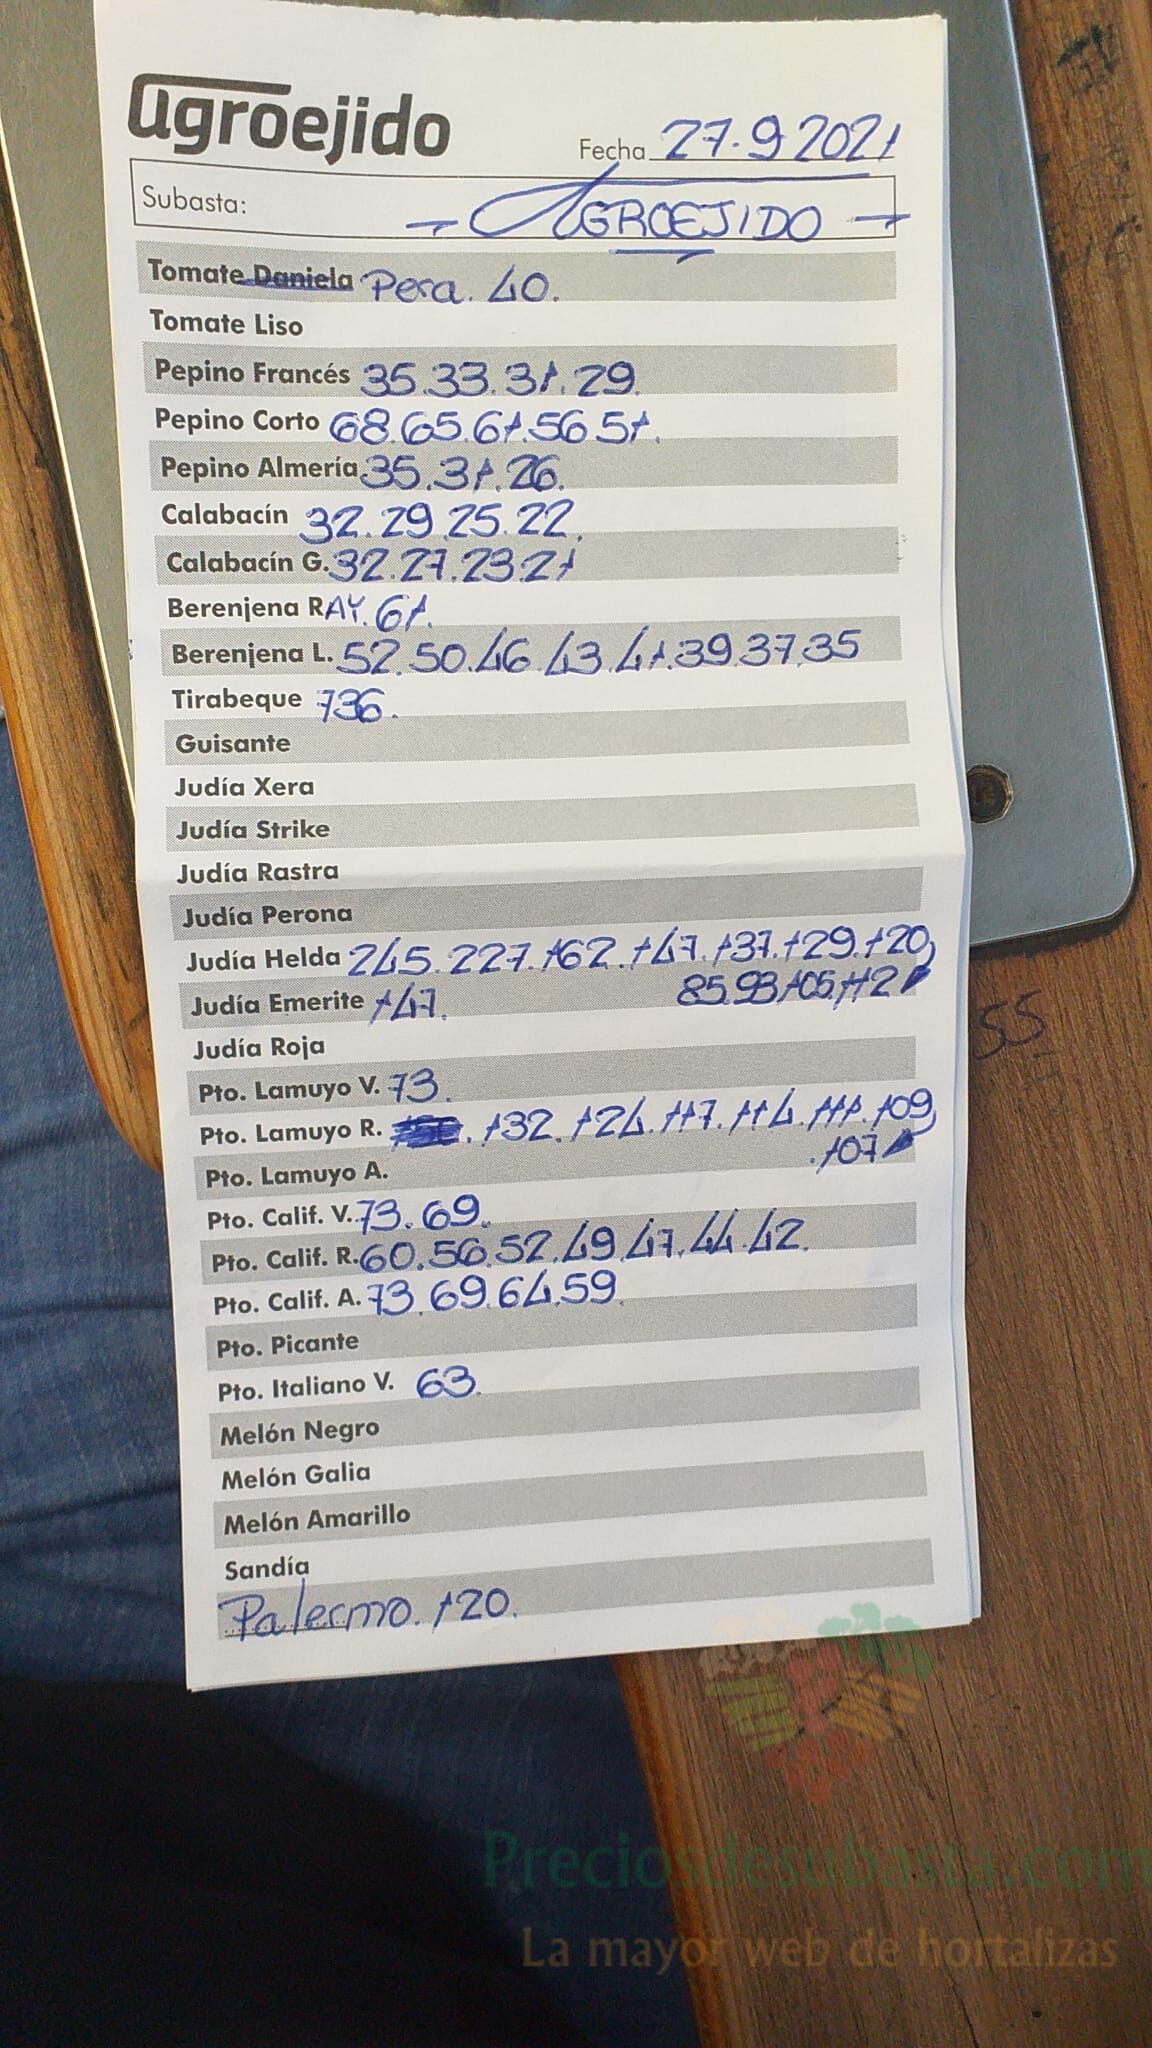 agroejido
Fecha 27.9 2021
Subasta: - AGROEJIDO -
Tomate Daniela Pera. 40.
Tomate Liso
Pepino Francés 35.33.31.29.
Pepino Corto 68.65.61.56.51.
Pepino Almería 35.31.26.
Calabacín 32.29.25.22.
Calabacín G. 32.27.23.21
Berenjena RAY. 61.
Berenjena L. 52.50.46.43.41.39.37.35
Tirabeque 736.
Guisante
Judía Xera
Judía Strike
Judía Rastra
Judía Perona
Judía Helda 245.227.162.147.137.129.120
85.93.105.112
Judía Emerite 147.
Judía Roja
Pto. Lamuyo V. 73.
Pto. Lamuyo R. .132.124.117.114.111.109
.107
Pto. Lamuyo A.
Pto. Calif. V. 73.69.
Pto. Calif. R. 60.56.52.49.47.44.42.
Pto. Calif. A. 73.69.64.59.
Pto. Picante
Pto. Italiano V. 63.
Melón Negro
Melón Galia
Melón Amarillo
Sandía
Palermo. 120.
55
Preciosdesubasta.com
La mayor web de hortalizas